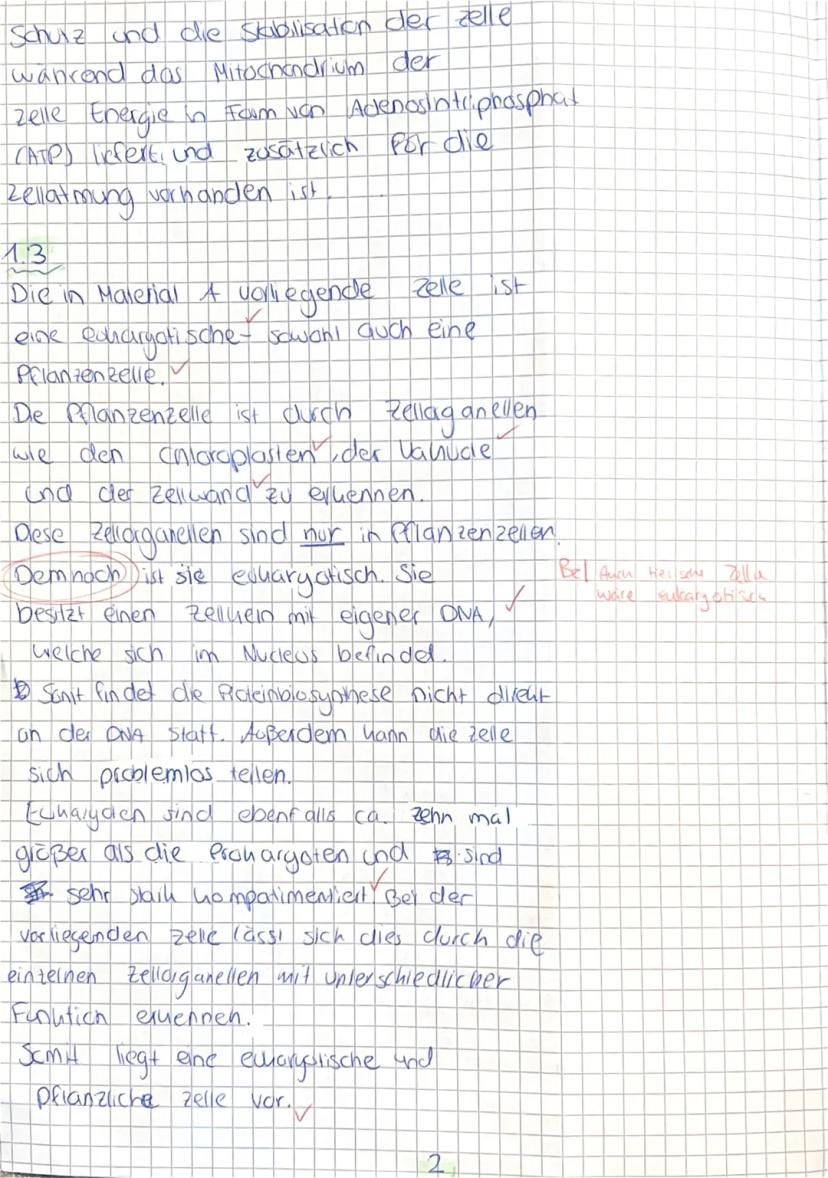 Schutz und die Stabilisation der Zelle
während das Mitochondrium der
Zelle Energie in Form von Adenosintriphosphat
(ATP) liefert, und zusätzlich für die
Zellatmung vorhanden ist.
1.3
Die in Material A vorliegende Zelle ist
eine eukaryotische- sowohl auch eine
Pflanzenzelle.
De Pflanzenzelle ist durch Zellaganellen
wie den Chloroplasten, der Vakuole
und der Zellwand zu erkennen.
Diese Zellorganellen sind nur in Pflanzenzellen.
Demnach ist sie eukaryotisch. Sie
Bel Auch tierische Zelle
wäre eukaryotisch
besitzt einen Zellkern mit eigener DNA,
welche sich im Nucleus befindet.
Somit findet die Proteinbiosynthese nicht direkt
an der DNA statt. Außerdem kann die Zelle
sich problemlos teilen.
Eukaryoten sind ebenfalls ca. zehn mal
größer als die Prokaryoten und sind
sehr stark kompatimentiert. Bei der
vorliegenden Zelle lässt sich dies durch die
einzelnen Zellorganellen mit unterschiedlicher
Funktion erkennen.
Somit liegt eine eukaryotische und
pflanzliche Zelle vor.
2